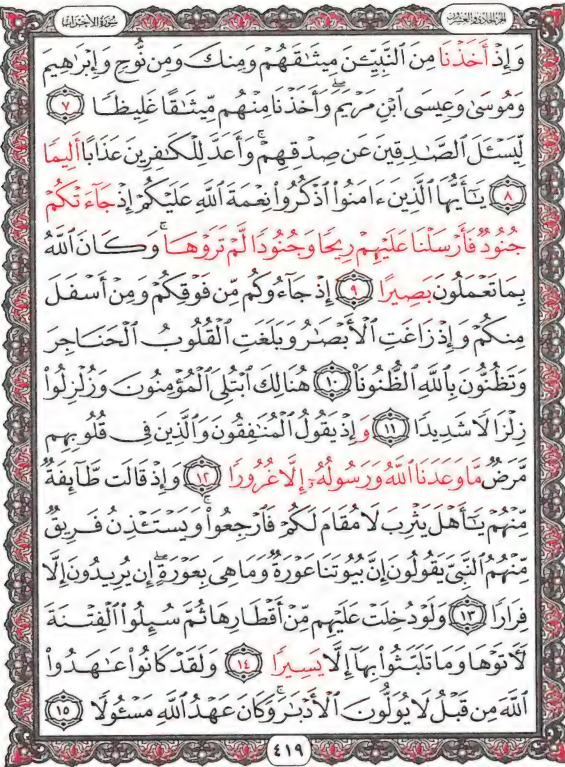 سُورَةُ الأَحْزَابِ
الجزء الحادي والعشرون
وَإِذْ أَخَذْنَا مِنَ ٱلنَّبِيِّـۧنَ مِيثَـٰقَهُمْ وَمِنكَ وَمِن نُّوحٍ وَإِبْرَٰهِيمَ
وَمُوسَىٰ وَعِيسَى ٱبْنِ مَرْيَمَ ۖ وَأَخَذْنَا مِنْهُم مِّيثَـٰقًا غَلِيظًا ٧
لِّيَسْـَٔلَ ٱلصَّـٰدِقِينَ عَن صِدْقِهِمْ ۚ وَأَعَدَّ لِلْكَـٰفِرِينَ عَذَابًا أَلِيمًا
٨ يَـٰٓأَيُّهَا ٱلَّذِينَ ءَامَنُوا۟ ٱذْكُرُوا۟ نِعْمَةَ ٱللَّهِ عَلَيْكُمْ إِذْ جَآءَتْكُمْ
جُنُودٌ فَأَرْسَلْنَا عَلَيْهِمْ رِيحًا وَجُنُودًا لَّمْ تَرَوْهَا ۚ وَكَانَ ٱللَّهُ
بِمَا تَعْمَلُونَ بَصِيرًا ٩ إِذْ جَآءُوكُم مِّن فَوْقِكُمْ وَمِنْ أَسْفَلَ
مِنكُمْ وَإِذْ زَاغَتِ ٱلْأَبْصَـٰرُ وَبَلَغَتِ ٱلْقُلُوبُ ٱلْحَنَاجِرَ
وَتَظُنُّونَ بِٱللَّهِ ٱلظُّنُونَا۠ ١٠ هُنَالِكَ ٱبْتُلِىَ ٱلْمُؤْمِنُونَ وَزُلْزِلُوا۟
زِلْزَالًا شَدِيدًا ١١ وَإِذْ يَقُولُ ٱلْمُنَـٰفِقُونَ وَٱلَّذِينَ فِى قُلُوبِهِم
مَّرَضٌ مَّا وَعَدَنَا ٱللَّهُ وَرَسُولُهُۥٓ إِلَّا غُرُورًا ١٢ وَإِذْ قَالَت طَّآئِفَةٌ
مِّنْهُمْ يَـٰٓأَهْلَ يَثْرِبَ لَا مُقَامَ لَكُمْ فَٱرْجِعُوا۟ ۚ وَيَسْتَـْٔذِنُ فَرِيقٌ
مِّنْهُمُ ٱلنَّبِىَّ يَقُولُونَ إِنَّ بُيُوتَنَا عَوْرَةٌ وَمَا هِىَ بِعَوْرَةٍ ۖ إِن يُرِيدُونَ إِلَّا
فِرَارًا ١٣ وَلَوْ دُخِلَتْ عَلَيْهِم مِّنْ أَقْطَارِهَا ثُمَّ سُئِلُوا۟ ٱلْفِتْنَةَ
لَـَٔاتَوْهَا وَمَا تَلَبَّثُوا۟ بِهَآ إِلَّا يَسِيرًا ١٤ وَلَقَدْ كَانُوا۟ عَـٰهَدُوا۟
ٱللَّهَ مِن قَبْلُ لَا يُوَلُّونَ ٱلْأَدْبَـٰرَ ۚ وَكَانَ عَهْدُ ٱللَّهِ مَسْـُٔولًا ١٥
٤١٩